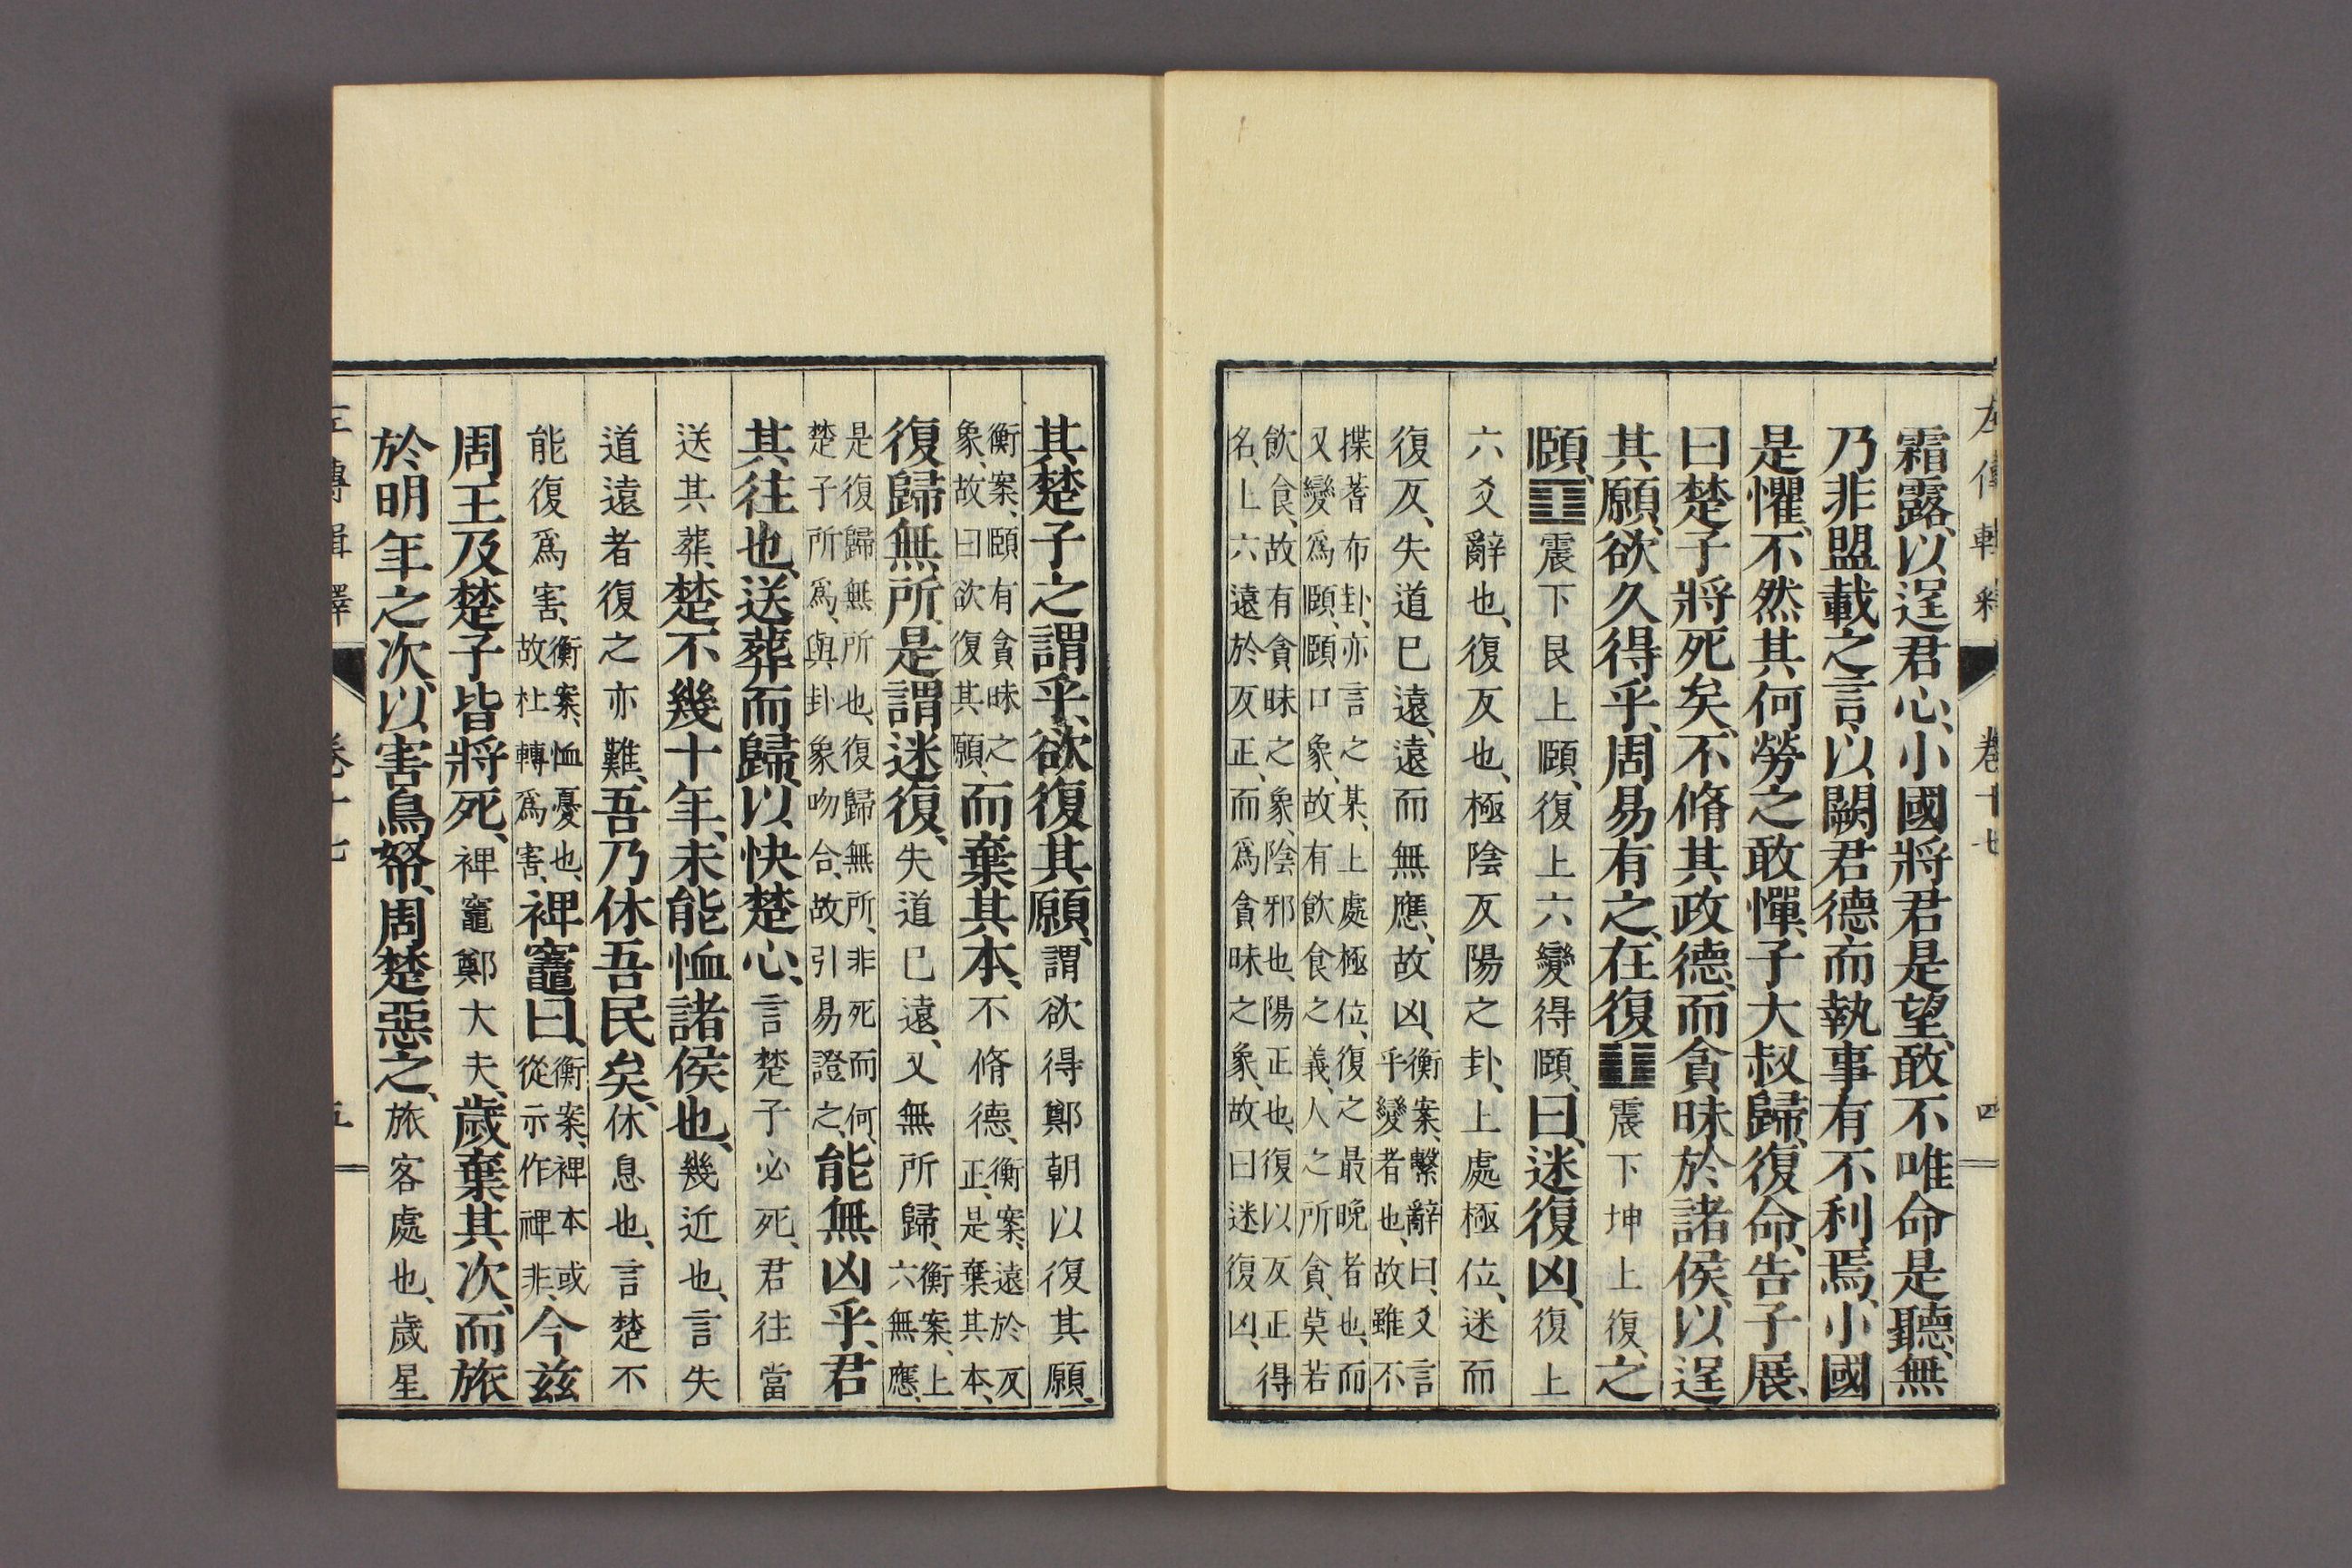 霜露、以逞君心、小國將君是望、敢不唯命是聽、無
乃非盟載之言、以闕君德、而執事有不利焉、小國
是懼、不然其何勞之敢憚、子大叔歸、復命、告子展、
曰楚子將死矣、不脩其政德、而貪昧於諸侯、以逞
其願、欲久得乎、周易有之、在復䷗震下坤上復、之
頤、䷚震下艮上頤、復上六變得頤、曰、迷復凶、復上
六爻辭也、復反也、極陰反陽之卦、上處極位、迷而
復反、失道已遠、遠而無應、故凶、衡案、繫辭曰、爻言
乎變者也、故雖不
揲蓍布卦、亦言之某、上處極位、復之最晚者也、而
又變爲頤、頤口象、故有飮食之義、人之所貪、莫若
飲食、故有貪昧之象、陰邪也、陽正也、復以反正得
名、上六遠於反正、而爲貪昧之象、故曰迷復凶、
左傳輯釋 卷十七 四
其楚子之謂乎、欲復其願、謂欲得鄭朝以復其願、
衡案、頤有貪昧之
象、故曰欲復其願、而棄其本、不脩德、衡案、遠於反
正、是棄其本、
復歸無所、是謂迷復、失道已遠、又無所歸、衡案、上
六無應、
是復歸無所也、復歸無所、非死而何、
楚子所爲、與卦象吻合、故引易證之、能無凶乎、君
其往也、送葬而歸、以快楚心、言楚子必死、君往當
送其葬、楚不幾十年、未能恤諸侯也、幾近也、言失
道遠者復之亦難、吾乃休吾民矣、休息也、言楚不
能復爲害、衡案、恤憂也、
故杜轉爲害、裨竈曰、衡案、裨本或
從示作裨非、今茲
周王及楚子皆將死、裨竈鄭大夫、歲棄其次、而旅
於明年之次、以害鳥帑、周楚惡之、旅客處也、歲星
左傳輯釋 卷十七 五